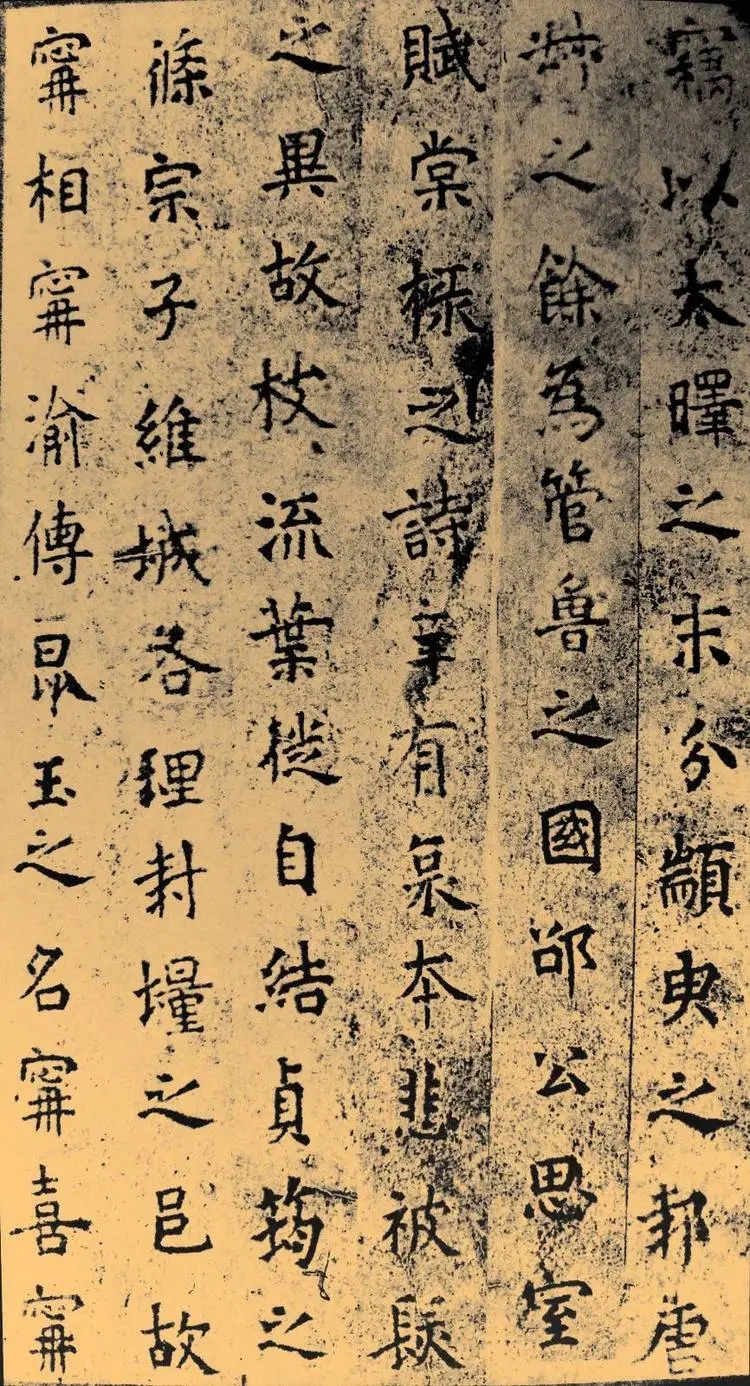 竊以太曎之末分顓臾之邦唐
叔之餘為管魯之國邵公思室
賦棠棣之詩有本悲被
之異故枝流葉徙自結貞筠之
條宗子維城各理封壃之邑故
甯相甯渝傳昆玉之名甯喜甯